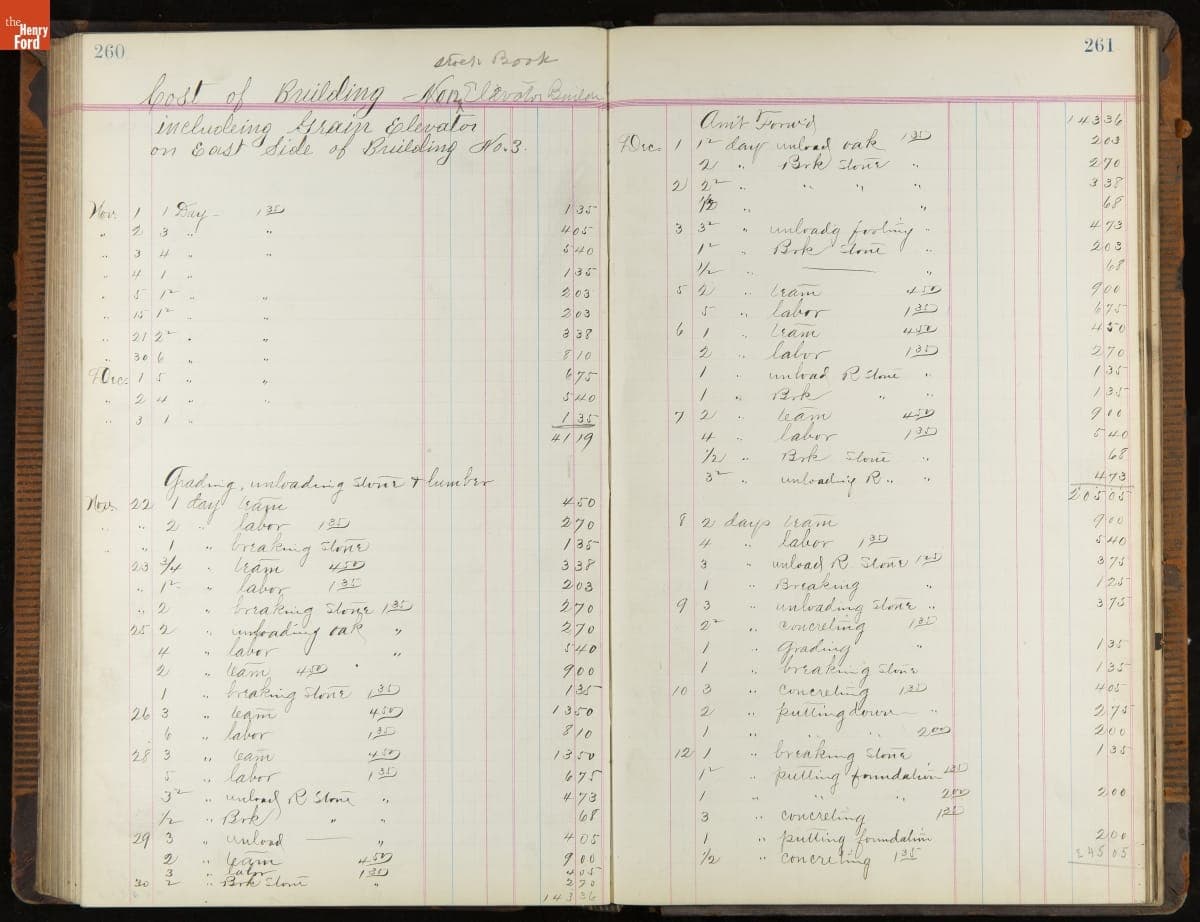 the Henry Ford
260
Stock Book
Cost of Building Non Elevator Buildin
includeing Grain Elevator
on East Side of Building No. 3.
Nov. 1 1 Day 1 35 1 35
" 2 3 " " 4 05
" 3 4 " " 5 40
" 4 1 " 1 35
" 5 1 2 " " 2 03
" 15 1 2 " " 2 03
" 21 2 2 " " 3 38
" 30 6 " " 8 10
Dec. 1 5 " " 6 75
" 2 4 " " 5 40
" 3 1 " 1 35
41 19
Grading, unloading stone & lumber
Nov. 22 1 day team 4 50
" " 2 " labor 1 35 2 70
" " 1 " breaking stone 1 35
23 3/4 " team 4 50 3 38
" 1 2 " labor 1 35 2 03
" 2 " breaking stone 1 35 2 70
25 2 " unloading oak " 2 70
4 " labor " 5 40
2 " team 4 50 9 00
1 " breaking stone 1 35 1 35
26 3 " team 4 50 13 50
6 " labor 1 35 8 10
28 3 " team 4 50 13 50
5 " labor 1 35 6 75
3 2 " unload R Stone " 4 73
1/2 " Brk " " 68
29 3 " unload — " 4 05
2 " team 4 50 9 00
3 " labor 1 35 4 05
30 2 " Brk Stone " 2 70
143 36
261
Am't Forw'd 143 36
Dec. 1 1 2 day unload oak 1 35 2 03
2 " Brk Stone " 2 70
2 2 2 " " " " 3 38
1/2 " " 68
3 3 2 " unloadg footing " 4 73
1 2 " Brk Stone " 2 03
1/2 " — " 68
5 2 " team 4 50 9 00
5 " labor 1 35 6 75
6 1 " team 4 50 4 50
2 " labor 1 35 2 70
1 " unload R Stone " 1 35
1 " Brk " " 1 35
7 2 " team 4 50 9 00
4 " labor 1 35 5 40
1/2 " Brk Stone " 68
3 2 " unloading R " " 4 73
205 05
8 2 days team 9 00
4 " labor 1 35 5 40
3 " unload R Stone 1 25 3 75
1 " Breaking " 1 25
9 3 " unloading stone " 3 75
2 2 " concreting 1 35
1 " Grading " 1 35
1 " breaking stone 1 35
10 3 " concreting 1 35 4 05
2 " putting down — " 2 75
1 " " " 2 00 2 00
12 1 " breaking stone 1 35
1 2 " putting foundation 1 35
1 " " " 2 00 2 00
3 " concreting 1 35
1 " putting foundation 2 00
1/2 " concreting 1 35 245 05